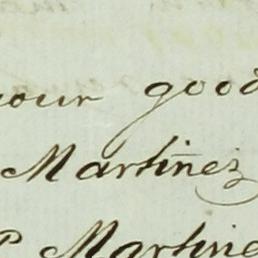 your good
Martinez
P. Martine